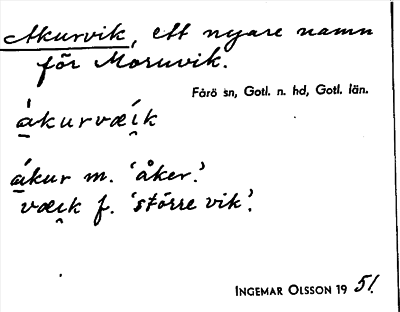 Akurvik, ett nyare namn
för Moruvik.
Fårö sn, Gotl. n. hd, Gotl. län.
á̱kurvæí̯k
á̱kur m. 'åker'.
væi̯k f. 'större vik'.
INGEMAR OLSSON 19 51.